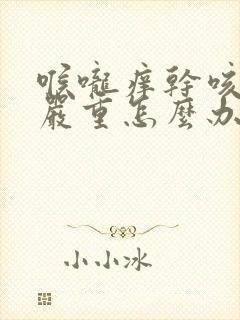 喉嚨癢幹咳
嚴重怎麼办
小小冰